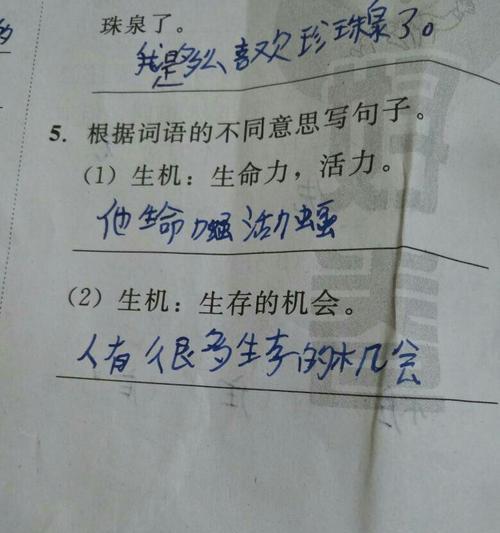 珠泉了。
我是多么喜欢珍珠泉了。
5. 根据词语的不同意思写句子。
(1) 生机：生命力，活力。
他生命力强活力强
(2) 生机：生存的机会。
人有很多生存的机会